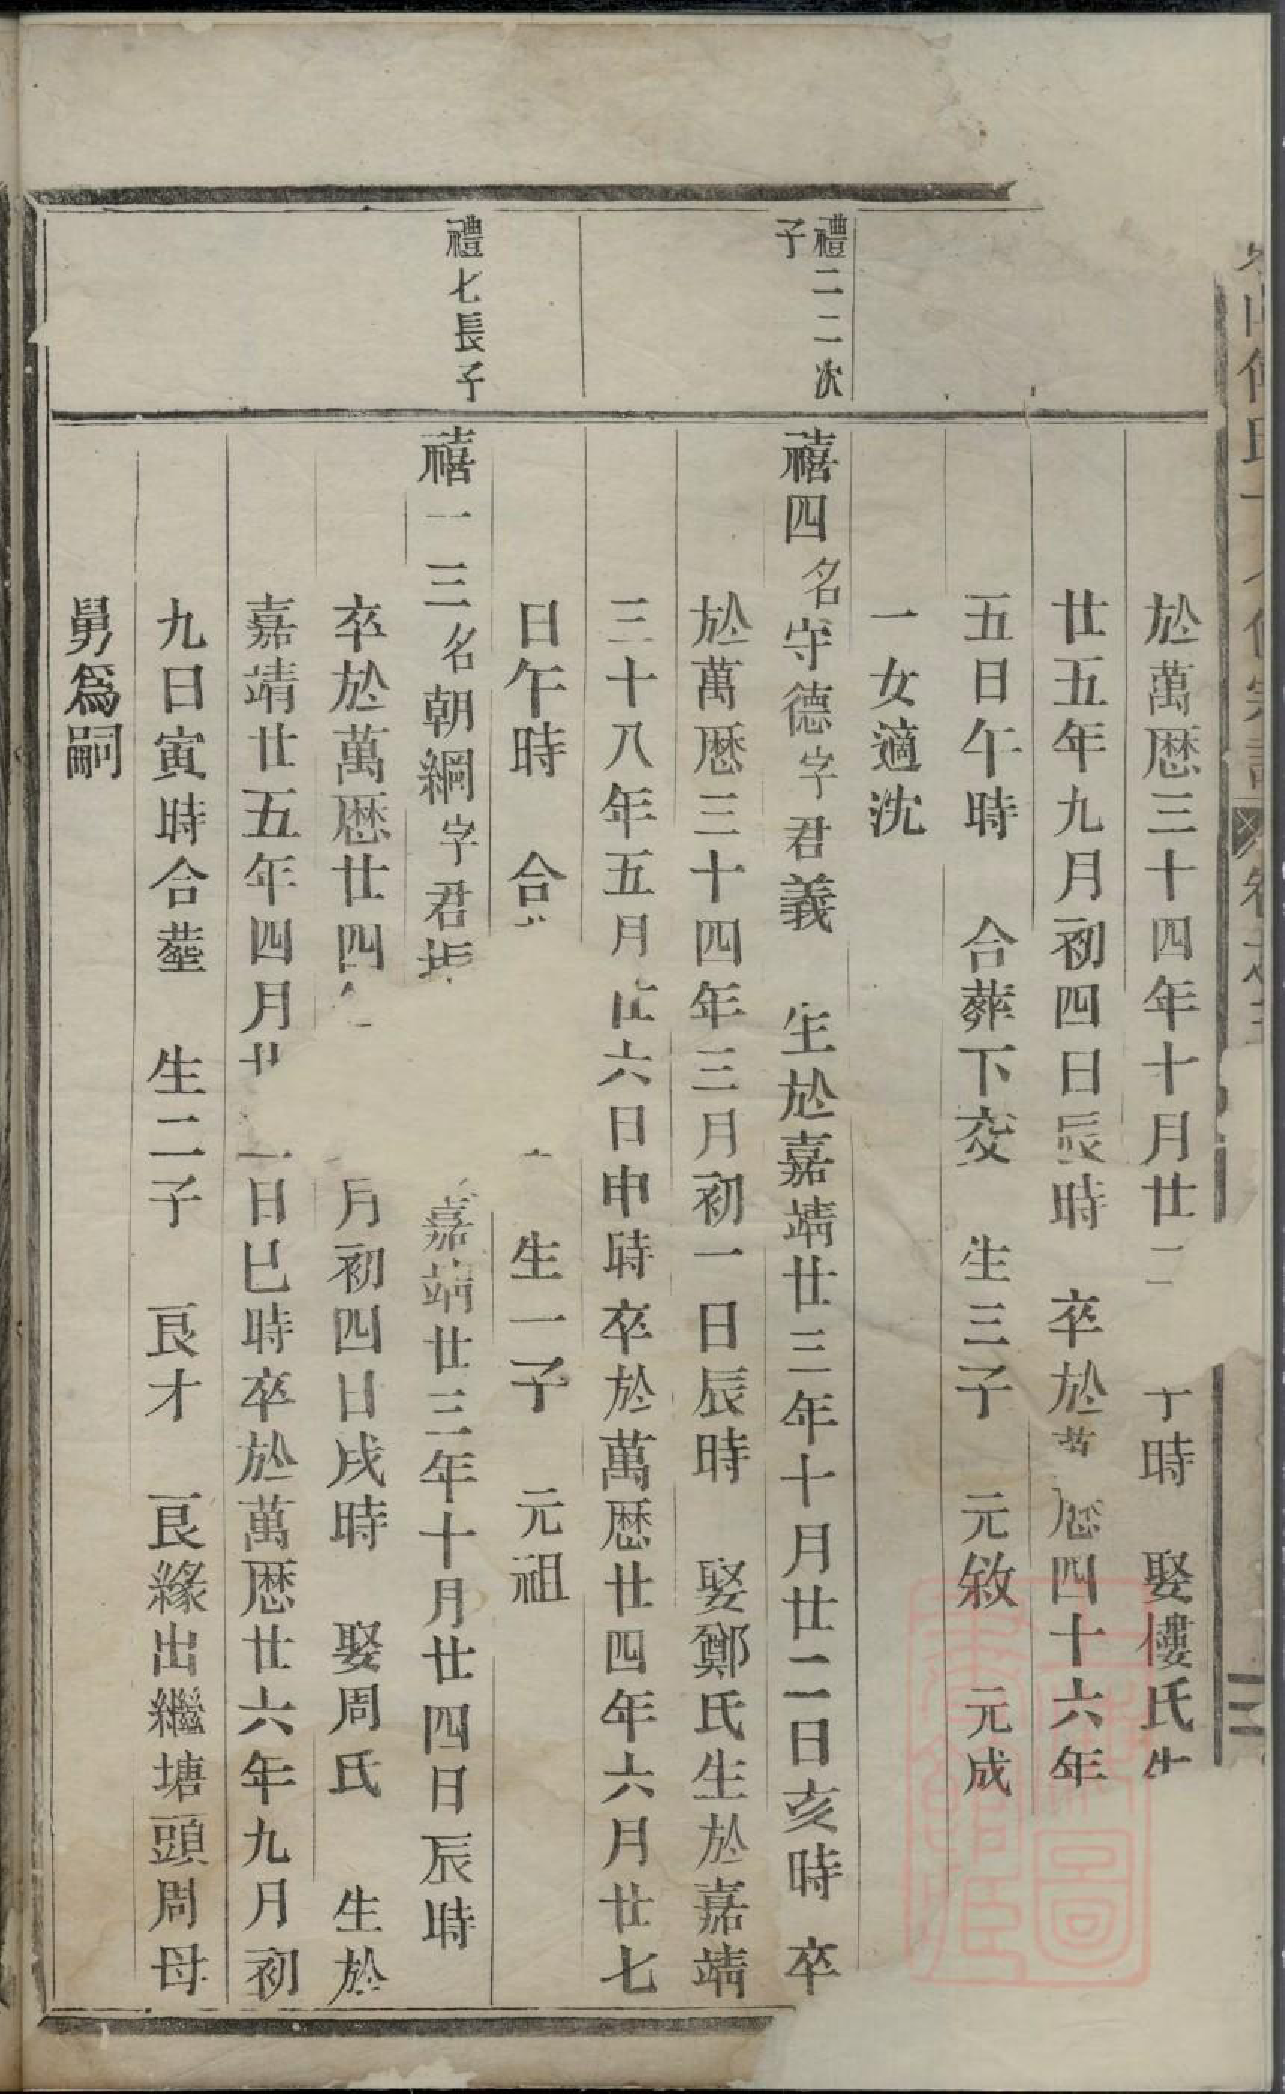 於萬厯三十四年十月廿二 時 娶僂氏生
廿五年九月初四日辰時 卒於萬厯四十六年
五日午時 合葬下交 生三子 元敘 元成
一女適沈
禮二二次子
禧四名守德字君義 生於嘉靖廿三年十月廿二日亥時 卒
於萬厯三十四年三月初一日辰時 娶鄭氏生於嘉靖
三十八年五月廿六日申時卒於萬厯廿四年六月廿七
日午時 合 生一子 元祖
禮七長子
禧一三名朝綱字君 嘉靖廿三年十月廿四日辰時
卒於萬厯廿四年 月初四日戌時 娶周氏 生於
嘉靖廿五年四月廿 日巳時卒於萬厯廿六年九月初
九日寅時合塟 生二子 良才 良緣出繼塘頭周母
舅爲嗣